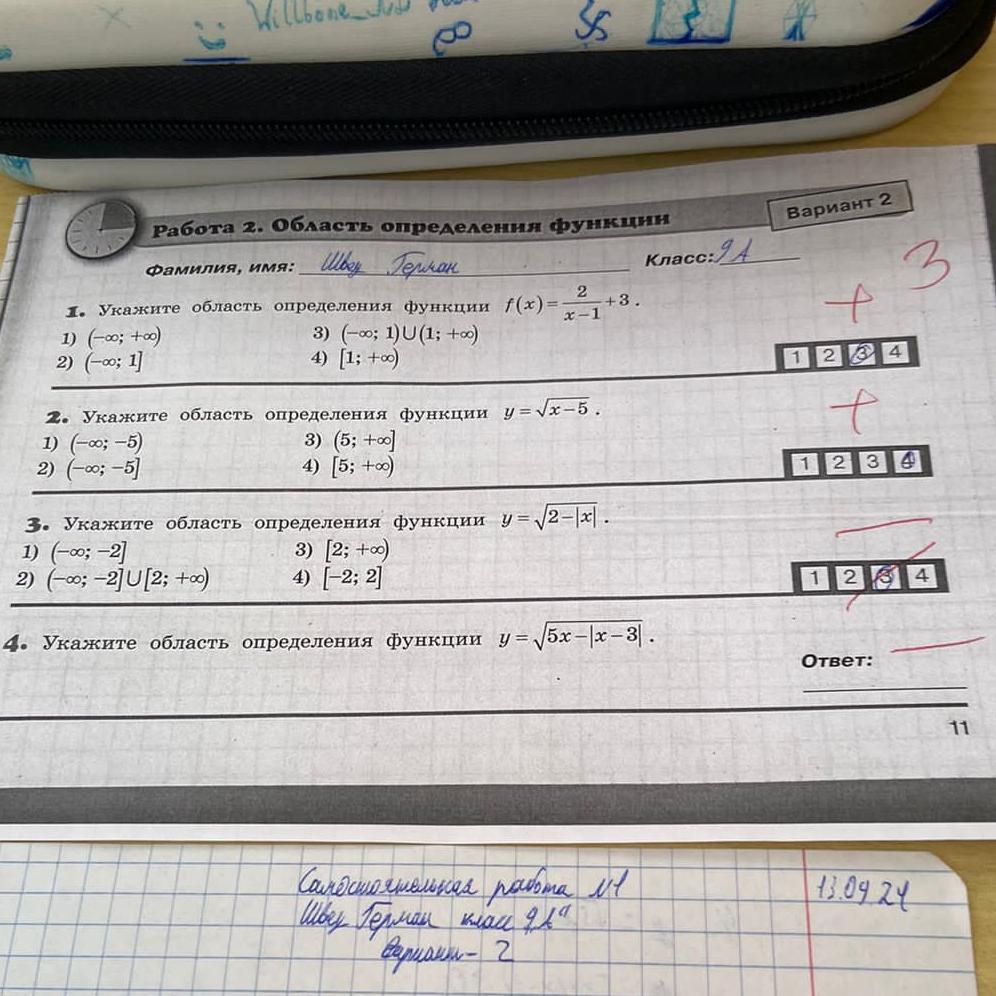 Работа 2. Область определения функции
Вариант 2
Фамилия, имя: Швец Герман Класс: 9 А
3
1. Укажите область определения функции f(x)=2/(x−1)+3.
+
1) (−∞; +∞) 3) (−∞; 1)∪(1; +∞)
2) (−∞; 1] 4) [1; +∞)
1 2 3 4
2. Укажите область определения функции y=√(x−5).
+
1) (−∞; −5) 3) (5; +∞]
2) (−∞; −5] 4) [5; +∞)
1 2 3 4
3. Укажите область определения функции y=√(2−|x|).
1) (−∞; −2] 3) [2; +∞)
2) (−∞; −2]∪[2; +∞) 4) [−2; 2]
1 2 3 4
4. Укажите область определения функции y=√(5x−|x−3|).
Ответ:
11
Самостоятельная работа №1 13.09.24
Швец Герман класс 9"А"
Вариант- 2